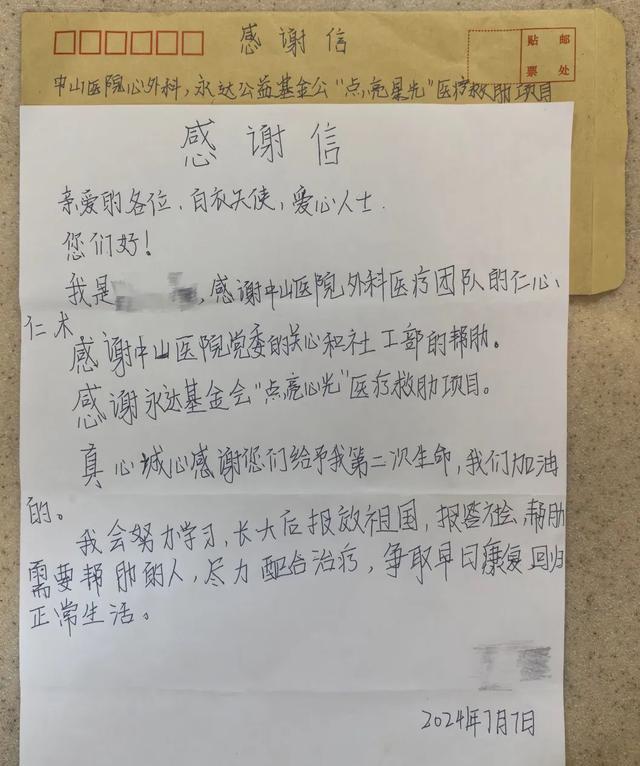 感谢信
贴 邮
票 处
中山医院心外科，永达公益基金公“点亮星光”医疗救助项目
感谢信
亲爱的各位、白衣天使，爱心人士.
您们好！
我是，感谢中山医院外科医疗团队的仁心、
仁术
感谢中山医院党委的关心和社工部的帮助。
感谢永达基金会“点亮心光”医疗救助项目。
真心诚心感谢您们给予我第二次生命，我们加油
的。
我会努力学习，长大后报效祖国，报答社会，帮助
需要帮助的人，尽力配合治疗，争取早日康复回归
正常生活。
2024年7月7日